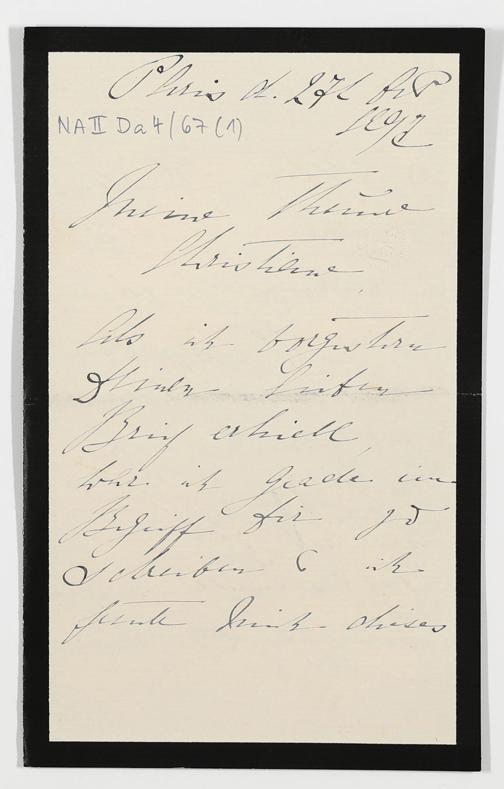 Paris d. 27t
NA II Da 4/67 (1)
1897
Meine Theure
Christiane
Als ich vorgestern
Deinen lieben
Brief erhielt,
war ich gerade im
Begriff Dir zu
schreiben & ich
freute mich dieses